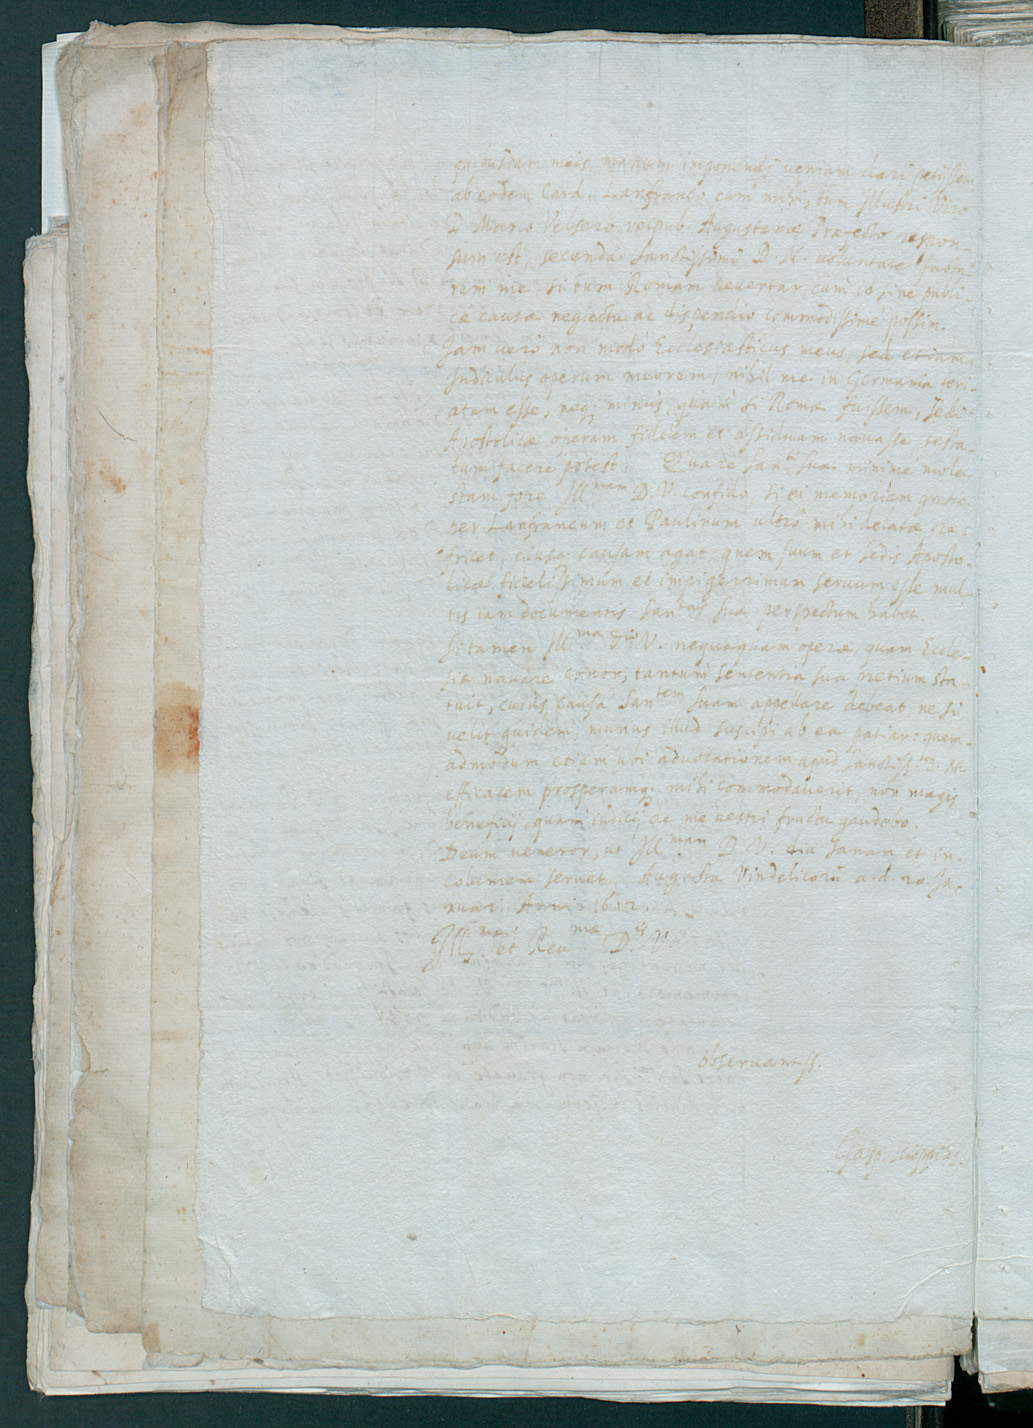 quibusdam meis manum imponendi veniam dari petijssem
ab eodem Card. Lanfranco, cum mihi, tum Illustri Viro
D. Marco Velsero reipub. Augustanæ Præfecto respon-
sum est, secunda Sanctissimi D. N. voluntate
rem me, si tum Romam revertar, cum id sine publi-
cæ causæ neglectu ac dispendio commodissime possim.
Jam vero non modo Ecclesiasticus meus, sed etiam
Indiculus operum meorum, nihil me in Germania feri-
atum esse, neq; minus, quam si Romæ fuissem, Sedi
Apostolicæ operam fidelem et assiduam navasse testa-
tum facere potest. Quare San.ti Suæ minime mole-
stam fore Ill.mam D. V. confido, si ei memoriam gratiæ
per Lanfrancum et Paulinum ultro mihi delatæ re-
fricet, eiusq; causam agat, quem suum et Sedis Aposto-
licæ fidelissimum et impigerrimum servum esse mul-
tis iam documentis San.tas Sua perspectum habet.
Si tamen Ill.ma D.io V. nequaquam operæ, quam Eccle-
siæ navare conor, tantum sententia sua pretium sta-
tuit, cuius causa San.tem Suam appellare debeat, ne si
velit quidem, munus illud suscipi ab ea patiar: quem-
admodum etiam ubi advocationem apud Sanctiss. D. N.
efficacem prosperamq; mihi commodaverit, non magis
beneficij, quam iudicij de me vestri fructu gaudebo.
Deum veneror, ut Ill.mam D. V. diu sanam et in-
columem servet. Augusta Vindelicorū a. d. 20 Ja-
nuar. Anni 1612.
Ill.mæ et Reu.mæ D.is V.
Observantiss.
Gasp. Scioppius.